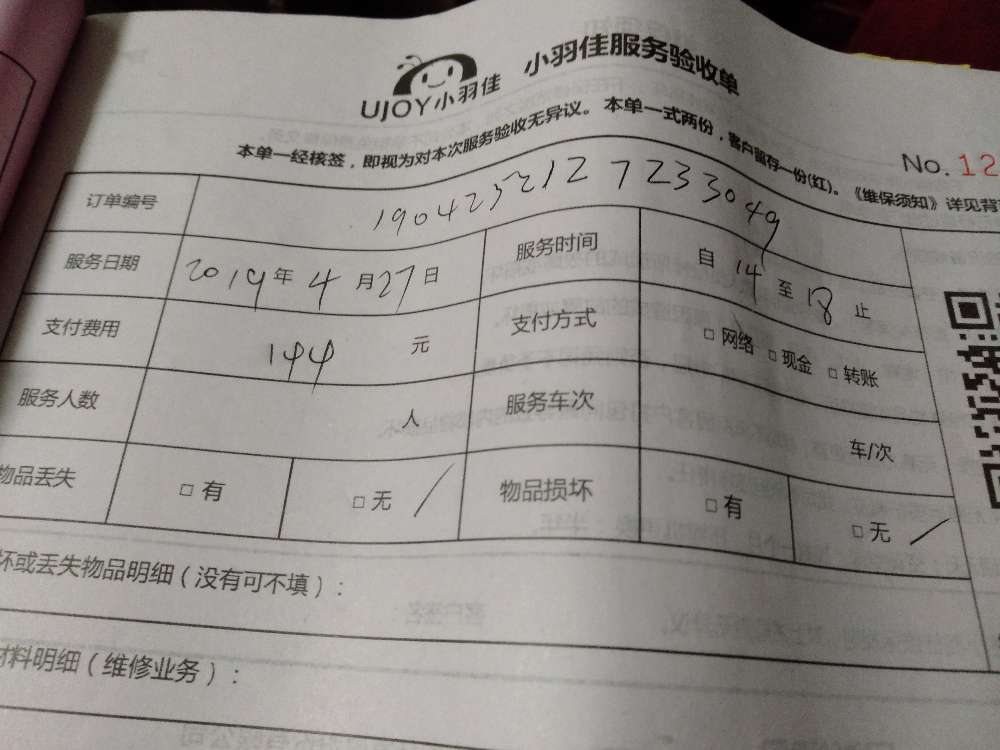 UJOY小羽佳 小羽佳服务验收单
本单一经核签，即视为对本次服务验收无异议。本单一式两份，客户留存一份(红)。《维保须知》详见背
No. 12
订单编号 190423521272233049
服务日期 2019年4月27日 服务时间 自 14 至 18 止
支付费用 144 元 支付方式 □ 网络 □ 现金 □ 转账
服务人数 人 服务车次 车/次
物品丢失 □ 有 □ 无 / 物品损坏 □ 有 □ 无 /
坏或丢失物品明细（没有可不填）：
材料明细（维修业务）：